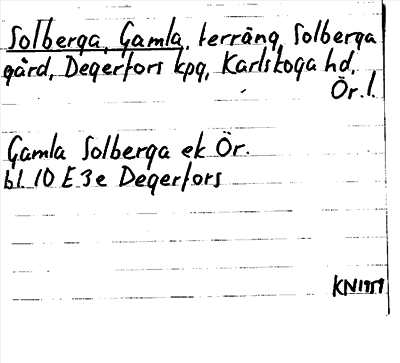 Solberga, Gamla, terräng, Solberga
gård, Degerfors kpg, Karlskoga hd.
Ör. l.
Gamla Solberga ek Ör.
bl. 10 E 3e Degerfors